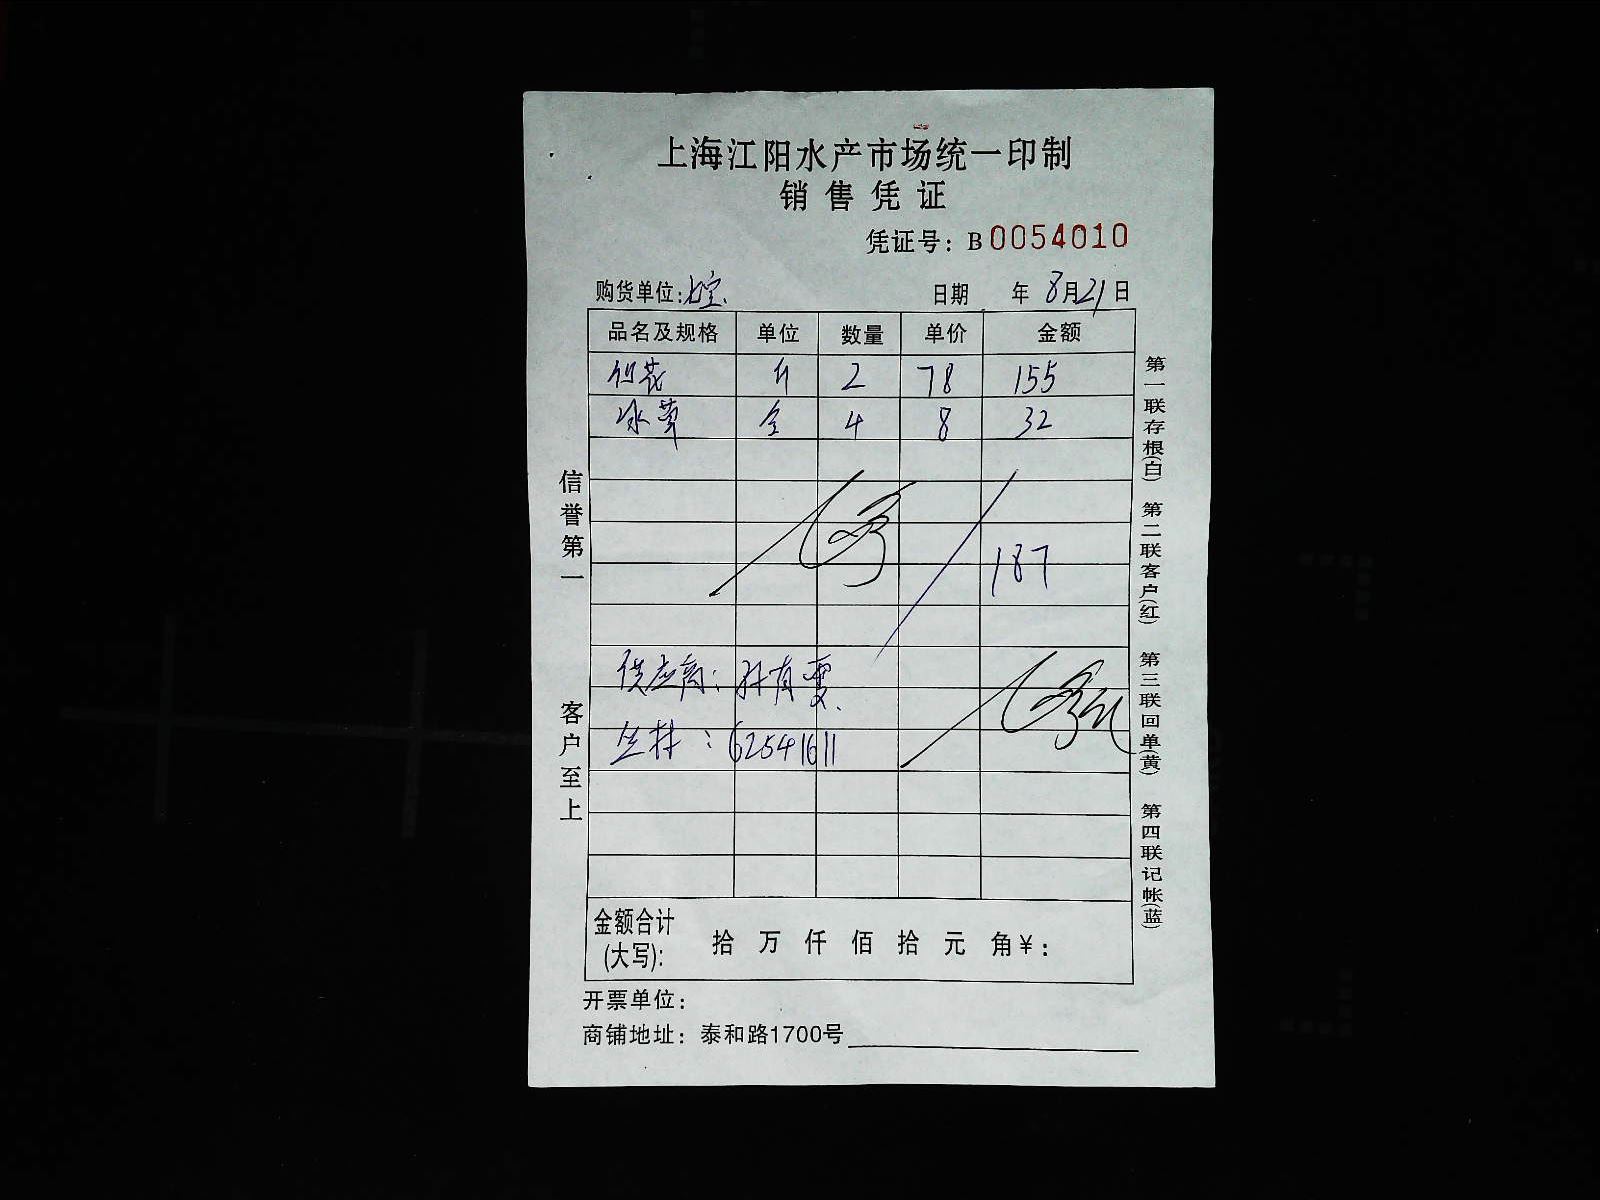 上海江阳水产市场统一印制
销售凭证
凭证号：B0054010
购货单位：七宝 日期 年8月21日
品名及规格 单位 数量 单价 金额
斤 2 78 155
冰 4 8 32
187
供应商：孙有雯
62541611
金额合计(大写)： 拾 万 仟 佰 拾 元 角￥：
开票单位：
商铺地址：泰和路1700号
信誉第一
客户至上
第一联存根(白) 第二联客户(红) 第三联回单(黄) 第四联记帐(蓝)